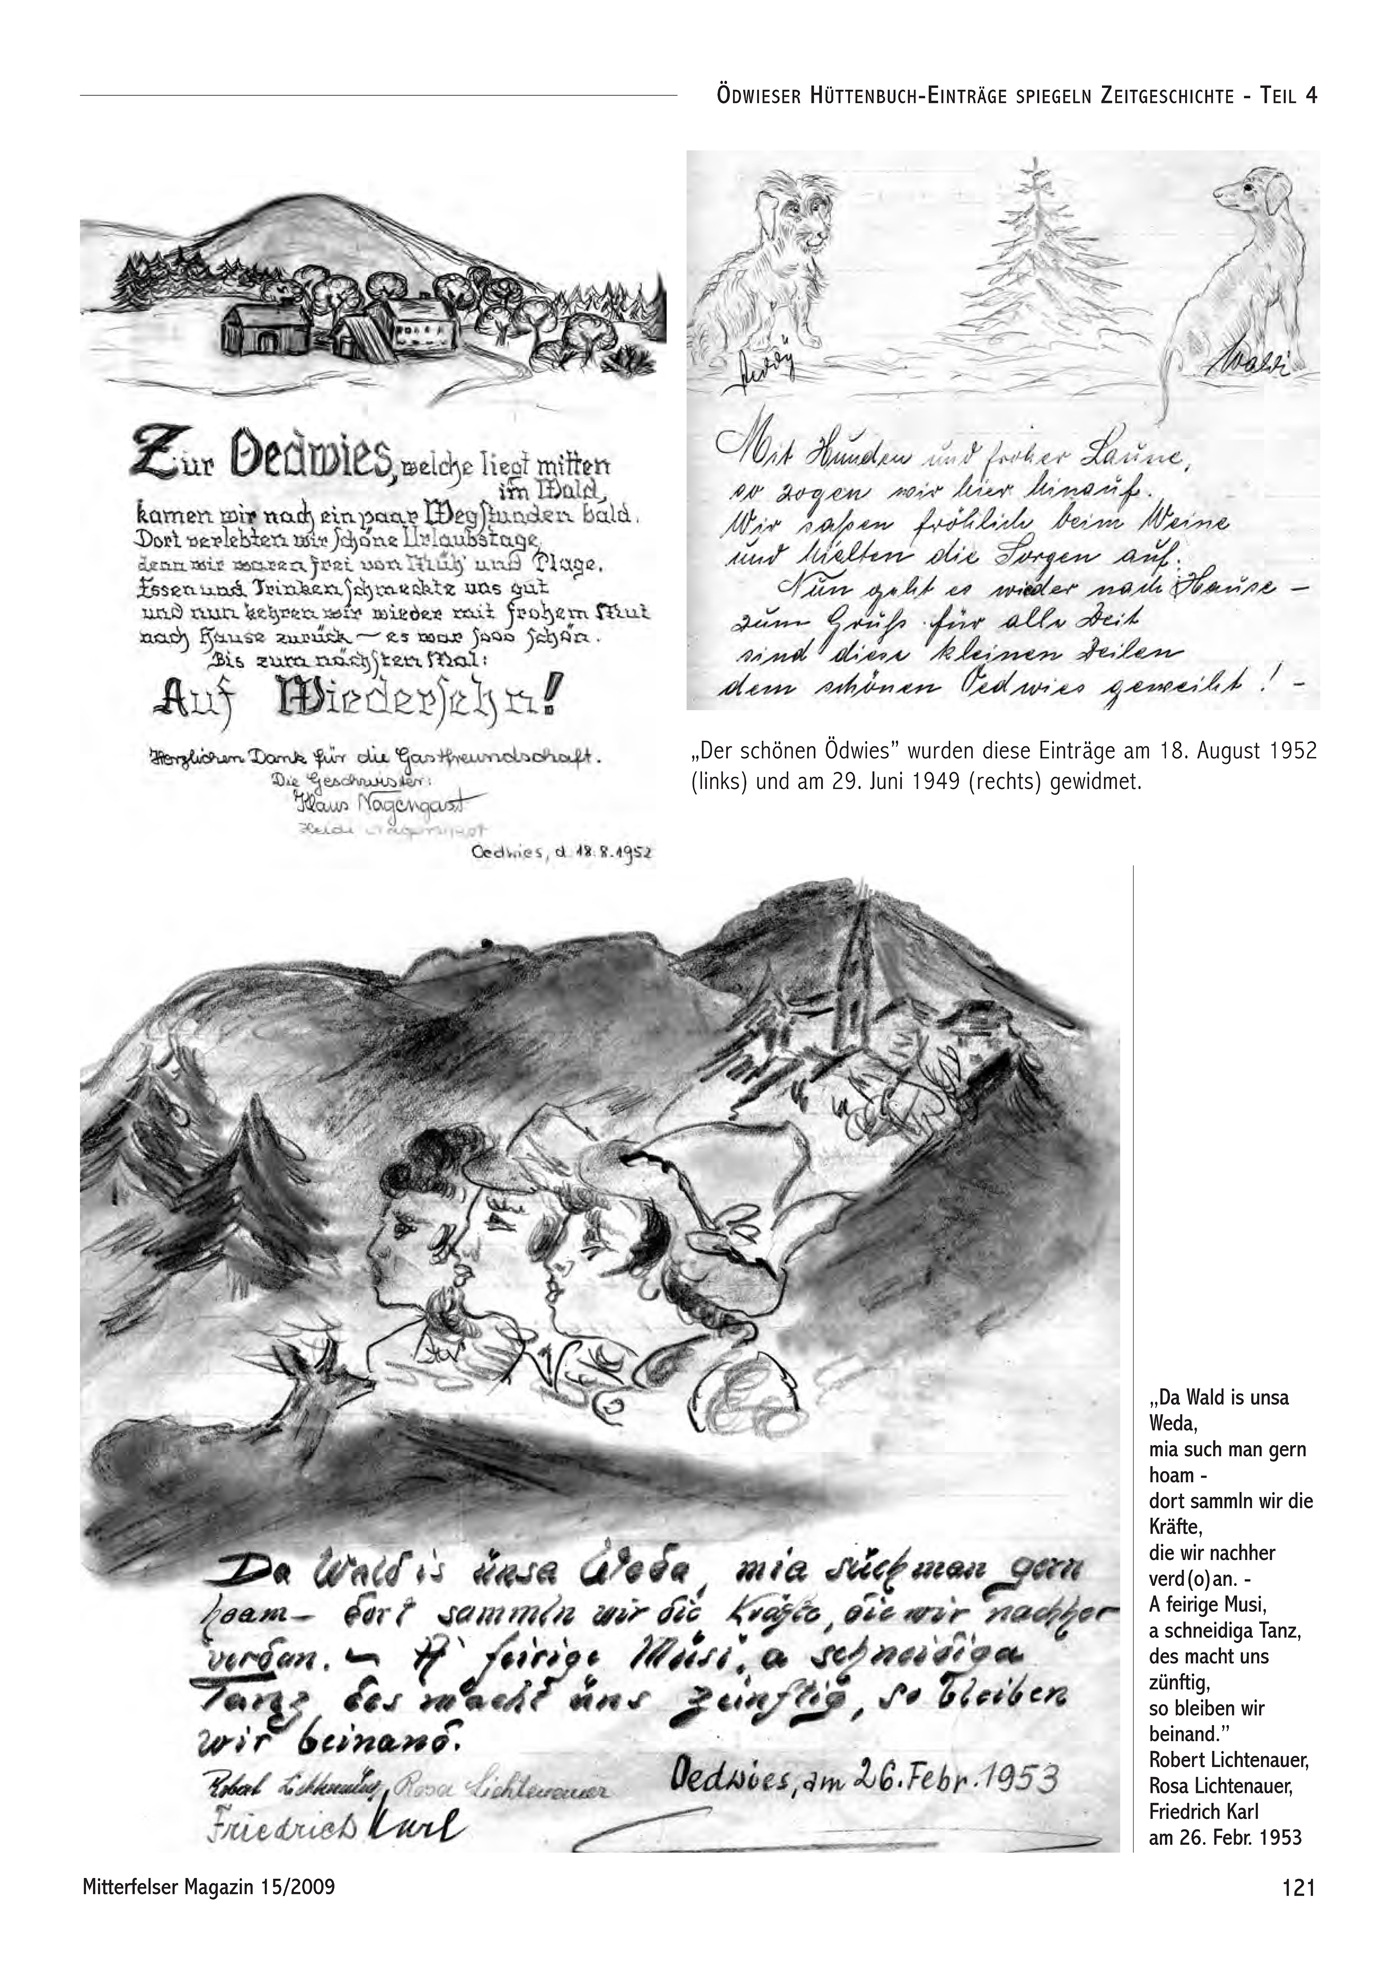 ÖDWIESER HÜTTENBUCH-EINTRÄGE SPIEGELN ZEITGESCHICHTE - TEIL 4
Zur Oedwies, welche liegt mitten
im Wald,
kamen wir nach ein paar Wegstunden bald.
Dort verlebten wir schöne Urlaubstage,
denn wir waren frei von Müh' und Plage.
Essen und Trinken schmeckte uns gut
und nun kehren wir wieder mit frohem Mut
nach Hause zurück — es war sooo schön.
Bis zum nächsten Mal:
Auf Wiedersehn!
Herzlichen Dank für die Gastfreundschaft.
Die Geschwister:
Klaus Nagengast
Heidi Nagengast
Oedwies, d. 18.8.1952
Waldi
Mit Hunden und froher Laune,
so zogen wir hier hinauf.
Wir saßen fröhlich beim Weine
und hielten die Sorgen auf.
Nun geht es wieder nach Hause –
zum Gruß für alle Zeit
sind diese kleinen Zeilen
dem schönen Oedwies geweiht! –
„Der schönen Ödwies” wurden diese Einträge am 18. August 1952
(links) und am 29. Juni 1949 (rechts) gewidmet.
Da Wald is unsa Weda, mia such man gern
hoam – dort sammln wir die Kräfte, die wir nachher
verdan. – A feirige Musi, a schneidiga
Tanz des macht uns zünftig, so bleiben
wir beinand.
Robert Lichtenauer, Rosa Lichtenauer
Friedrich Karl
Oedwies, am 26. Febr. 1953
„Da Wald is unsa
Weda,
mia such man gern
hoam -
dort sammln wir die
Kräfte,
die wir nachher
verd(o)an. -
A feirige Musi,
a schneidiga Tanz,
des macht uns
zünftig,
so bleiben wir
beinand.”
Robert Lichtenauer,
Rosa Lichtenauer,
Friedrich Karl
am 26. Febr. 1953
Mitterfelser Magazin 15/2009
121